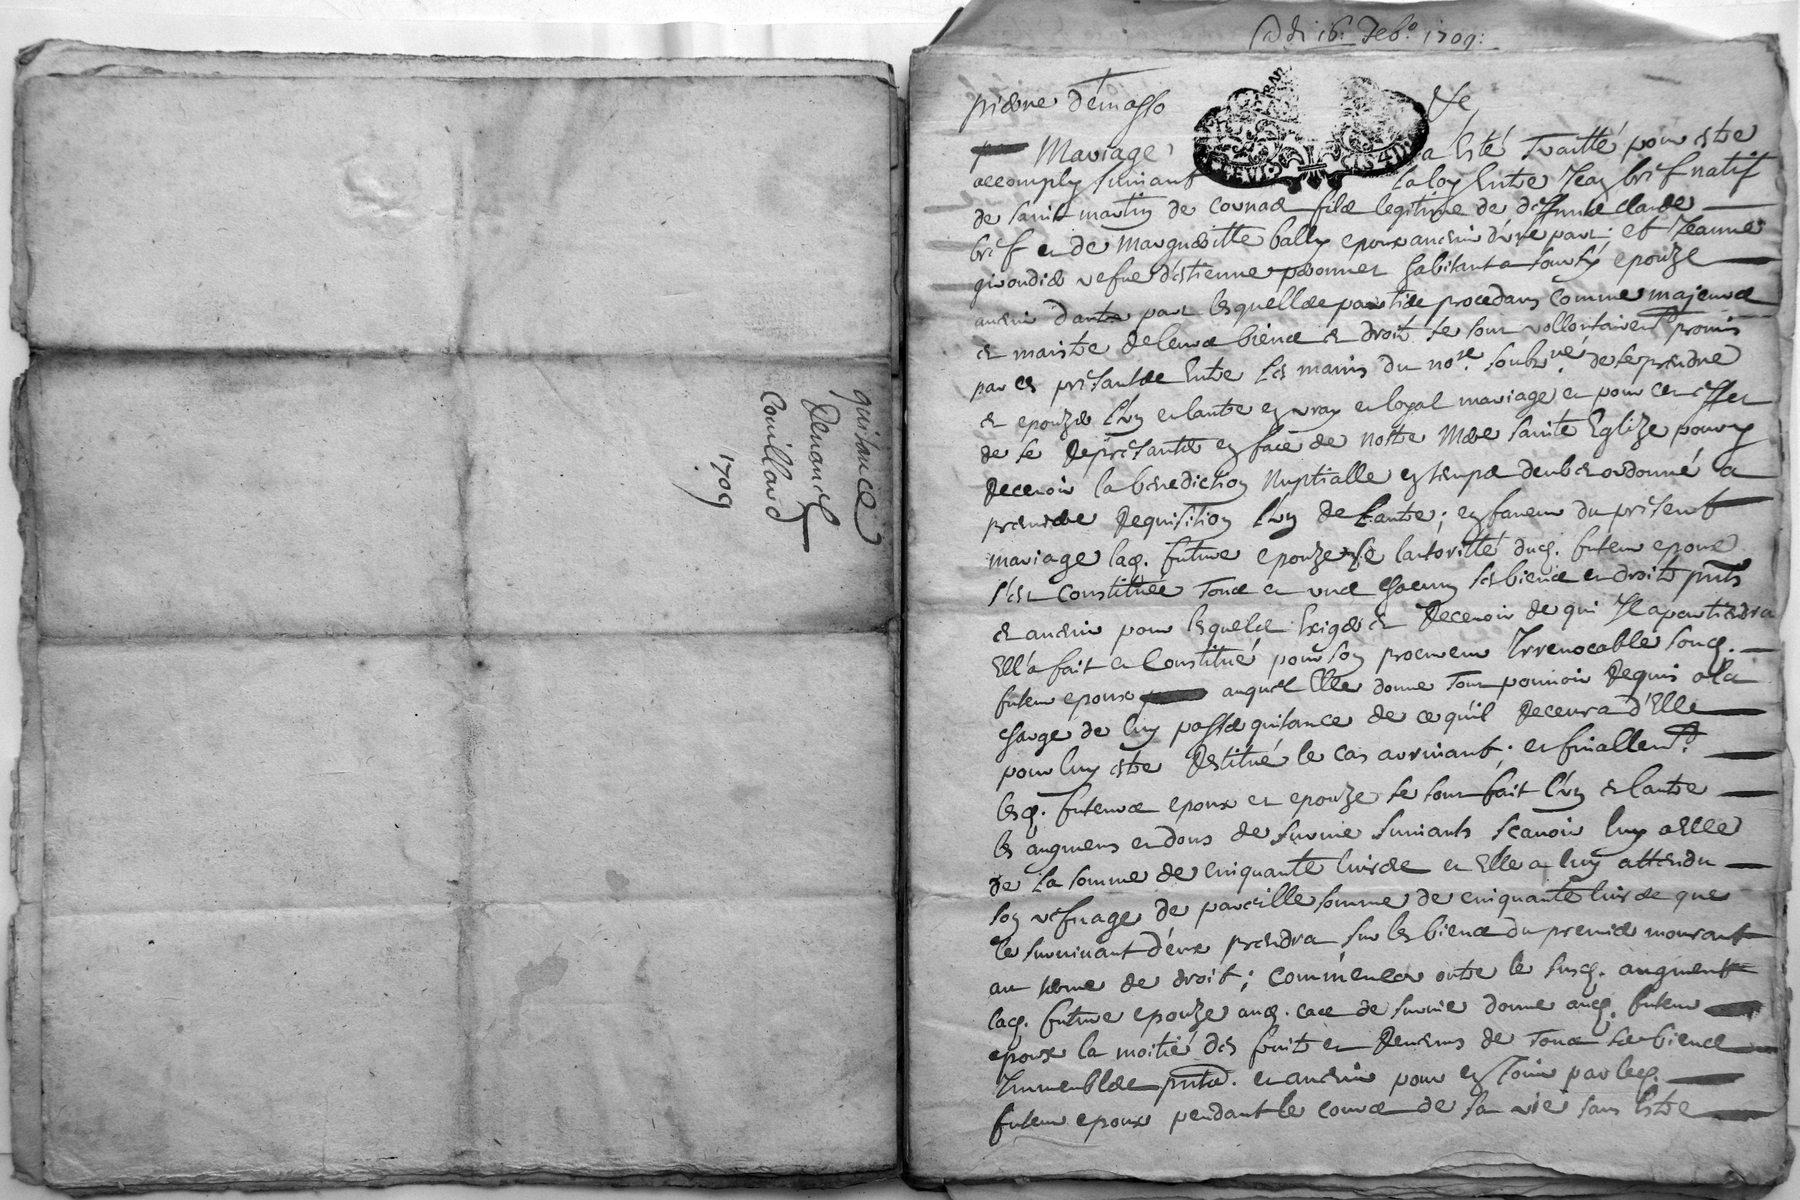 quitance
Couillard
1709
16. feb.o 1709.
Mariage a esté Traitté pour estre
accomply suivant la loy Entre Jean brif natif
de saint martin de Cornas fils legitime de deffunt claude
brif et de Margueritte bally epoux avenir d'une part; et Jeanne
vefve d'estienne habitant a epouze
avenir d'autre part lesquelles parties procedans comme majeurs
et maistre de leurs biens et droits se sont vollontairemt promis
par ces presantes Entre les mains du nore. soubzné. de se prendre
et epouzer l'un et l'autre en vray et loyal mariage et pour cet effet
de se Representer en face de nostre Mere sainte Eglize pour y
Recevoir la benediction Nuptialle en temps deub et ordonné a
premiere Requisition l'un de L'autre; en faveur du present
mariage lad. future epouze de lautoritté dud. futeur epoux
s'est Constituée Tous et uns chacuns ses biens et droits pnts
et avenir pour lesquels Exiger et Recevoir de qui Il apartiendra
Ell'a fait et Constitué pour son procureur Irrevocable sond.
futeur epoux auquel Elle donne Tout pouvoir Requis a la
charge de luy passer quitance de ce qu'il Recevra d'Elle
pour luy estre Restitué le cas arrivant; et finallemt.
lesd. futeurs epoux et epouze se sont fait l'un et lautre
les augmens et dons de survie suivants scavoir luy a Elle
de La somme de cinquante livres et Elle a luy attendu
son vefvage de pareille somme de cinquante livres que
le survivant d'eux prendra sur les biens du premier mourant
au terme de droit; comme encor outre le susd. augment
lad. future epouze aud. cas de survie donne aud. futeur
epoux la moitié des fruits et Revenus de Tous ses biens
Immeubles pnts. et avenir pour en Jouir par led.
futeur epoux pendant le cours de sa vie sans Estre